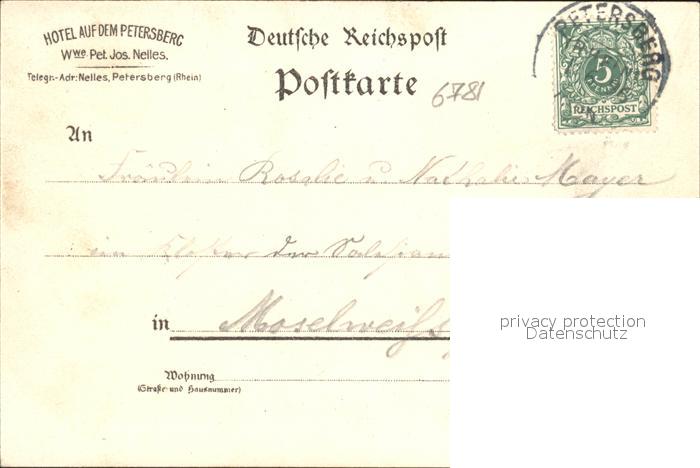 HOTEL AUF DEM PETERSBERG
Wwe. Pet. Jos. Nelles.
Telegr.-Adr: Nelles, Petersberg (Rhein)
Deutsche Reichspost
Postkarte
6781
PETERSBERG
5
PFENNIG
REICHSPOST
An
Fräulein Rosalie u. Nathalie Mayer
im Kloster der Salesian
in Moselweiß
privacy protection
Datenschutz
Wohnung
(Straße und Hausnummer)